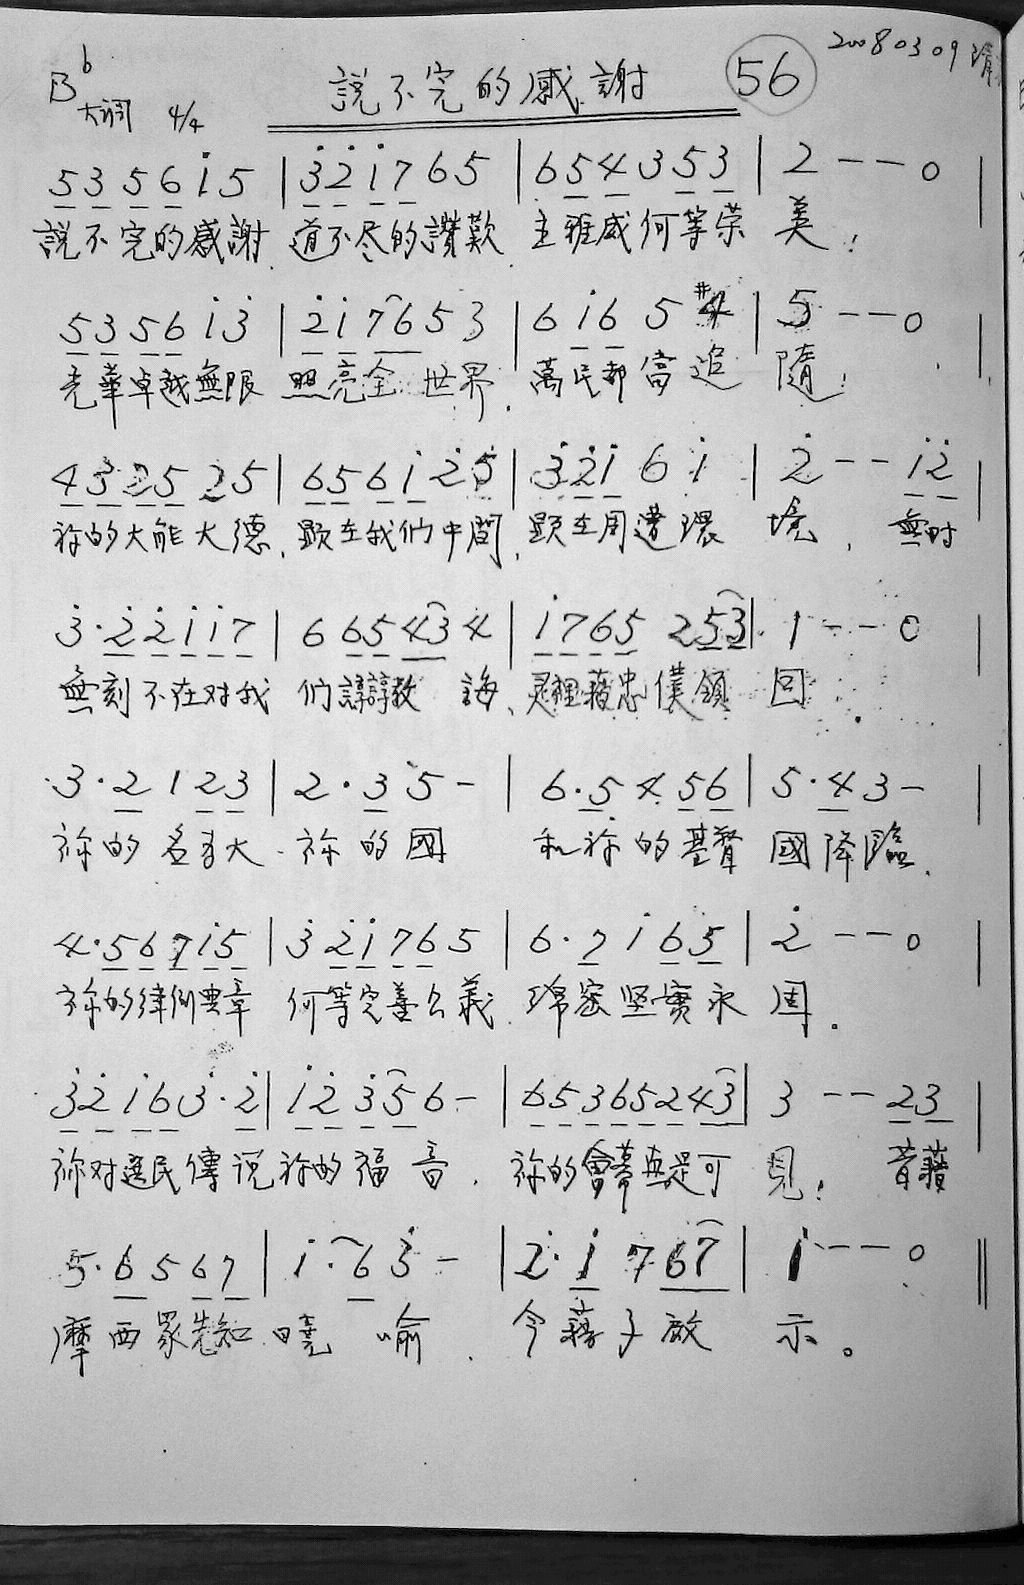 20080309
B♭大调 4/4 說不完的感謝 56
5 3 5 6 i 5 | 3 2 i 7 6 5 | 6 5 4 3 5 3 | 2 - - 0 |
說不完的感謝.道不尽的讚歎.主雅威何等荣美!
5 3 5 6 i 3 | 2 i 7 6 5 3 | 6 i 6 5 #4 | 5 - - 0 |
光華卓越無限照亮全世界.萬民都當追隨!
4 3 2 5 2 5 | 6 5 6 i 2 5 | 3 2 i 6 i | 2 - - i 2 |
祢的大能大德,顯在我们中間,顯在周遭環境,無时
3 · 2 2 i i 7 | 6 6 5 4 3 4 | i 7 6 5 2 5 3 | 1 - - 0
無刻不在对我们諄諄教誨、灵裡藉忠僕領回.
3 · 2 1 2 3 | 2 · 3 5 - | 6 · 5 4 5 6 | 5 · 4 3 - |
祢的名至大.祢的國和祢的基督國降臨.
4 · 5 6 7 i 5 | 3 2 i 7 6 5 | 6 · 7 i 6 5 | 2 - - 0 |
祢的律例典章何等完善公義.綿密坚實永固.
3 2 i 6 3 · 2 | i 2 3 5 6 - | 6 5 3 6 5 2 4 3 | 3 - - 2 3 |
祢对選民傳说祢的福音.祢的會幕與是可見!昔藉
5 · 6 5 6 7 | i · 6 3 - | 2 · i 7 6 7 | i - - 0 ||
摩西眾先知曉喻.今藉子啟示。